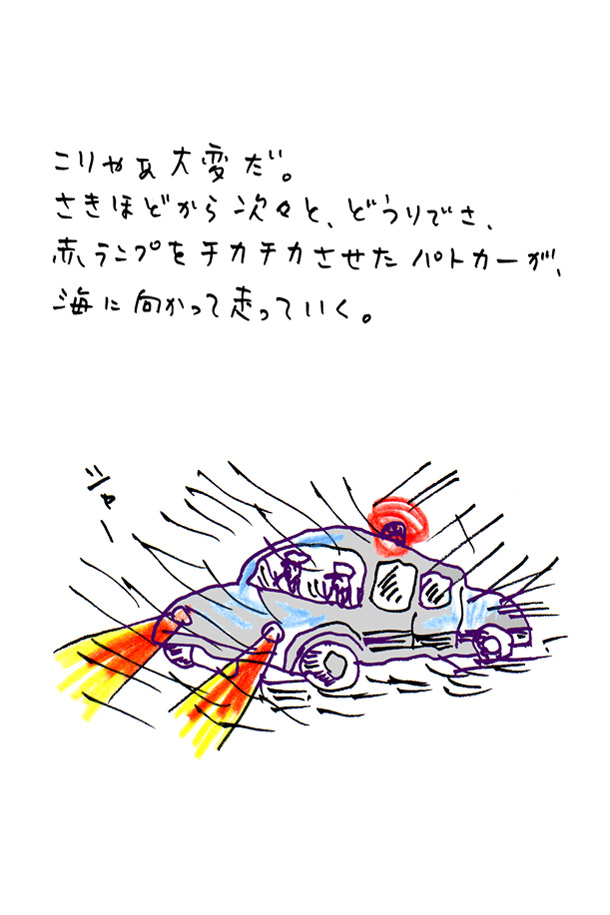 こりゃあ大変だ。
さきほどから次々と、どうりでさ、
赤ランプをチカチカさせたパトカーが、
海に向かって走っていく。
シャー